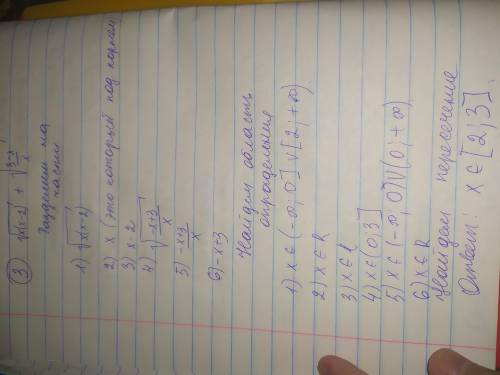 ③ √x(x-2) + √(3-x)/x
Разделим на
части
1) √x(x-2)
2) x (это который под корнем)
3) x-2
4) √(-x+3)/x
5) (-x+3)/x
6) -x+3
Найдем область
определения
1) x ∈ (-∞; 0] ∨ [2; +∞)
2) x ∈ R
3) x ∈ R
4) x ∈ (0; 3]
5) x ∈ (-∞; 0) ∨ (0; +∞)
6) x ∈ R
Найдем пересечение
Ответ: x ∈ [2; 3].